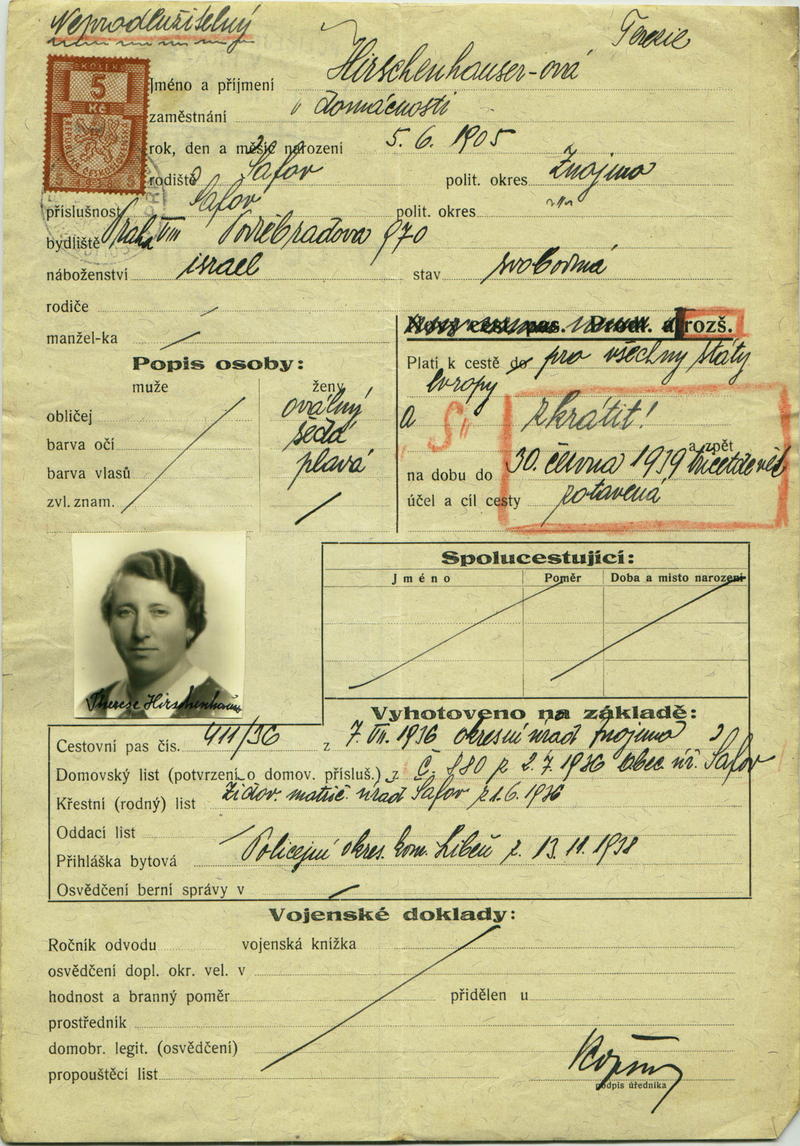 Neprodlužitelný
KOLEK
5
Kč
Terezie
Jméno a příjmení Hirschenhauser-ová
zaměstnání v domácnosti
rok, den a měsíc narození 5. 6. 1905
rodiště Šafov polit. okres Znojmo
příslušnost Šafov polit. okres -"-
bydliště Praha VIII Poděbradova 970
náboženství israel stav svobodná
rodiče
manžel-ka
rozš.
Popis osoby:
muže ženy
obličej oválný
barva očí šedá
barva vlasů plavá
zvl. znam.
Platí k cestě do pro všechny státy
Evropy
a "S" zkrátit!
a zpět
na dobu do 30. června 1939 třicetdevět
účel a cíl cesty zotavená
Spolucestující:
Jméno Poměr Doba a misto narození
Therese Hirschenhauser
Vyhotoveno na základě:
Cestovní pas čís. 411/36 z 7. VII. 1936 okresní úřad Znojmo
Domovský list (potvrzení o domov. přísluš.) z Č. 980 z 2.7.1936 obec. úř. Šafov
Křestní (rodný) list Židov. matrič. úřad Šafov z 1.6.1936
Oddací list
Přihláška bytová Policejní okres. kom. Libeň z. 13. 11. 1938
Osvědčení berní správy v
Vojenské doklady:
Ročník odvodu vojenská knížka
osvědčení dopl. okr. vel. v
hodnost a branný poměr přidělen u
prostředník
domobr. legit. (osvědčení)
propouštěcí list
podpis úředníka